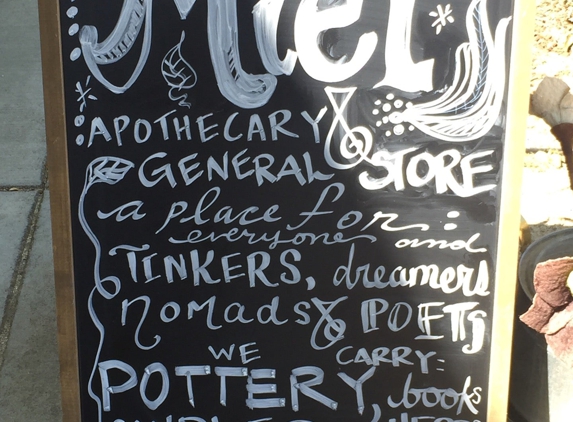 APOTHECARY &
GENERAL STORE
a place for:
everyone and
TINKERS, dreamers
nomads & POETS
WE CARRY:
POTTERY, books